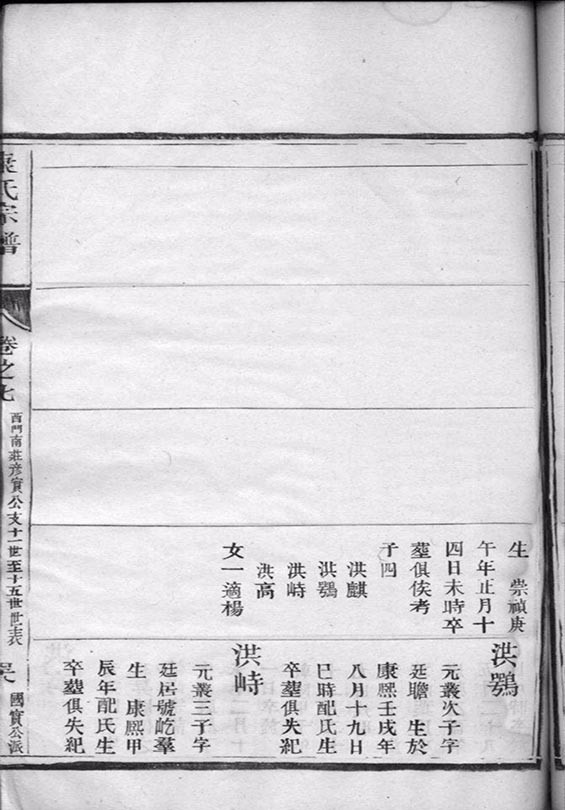 生 崇禎庚
午年正月十
四日未時卒
塟俱俟考
子四
洪麒
洪鶚
洪峙
洪高
女一適楊
洪鶚
元叢次子字
廷瞻 生於
康熙壬戌年
八月十九日
巳時配氏生
卒塟俱失紀
洪峙
元叢三子字
廷居號屹羣
生 康熙甲
辰年配氏生
卒塟俱失紀
康氏宗譜
卷之七
西門南莊彦實公支十一世至十五世世表
國實公派